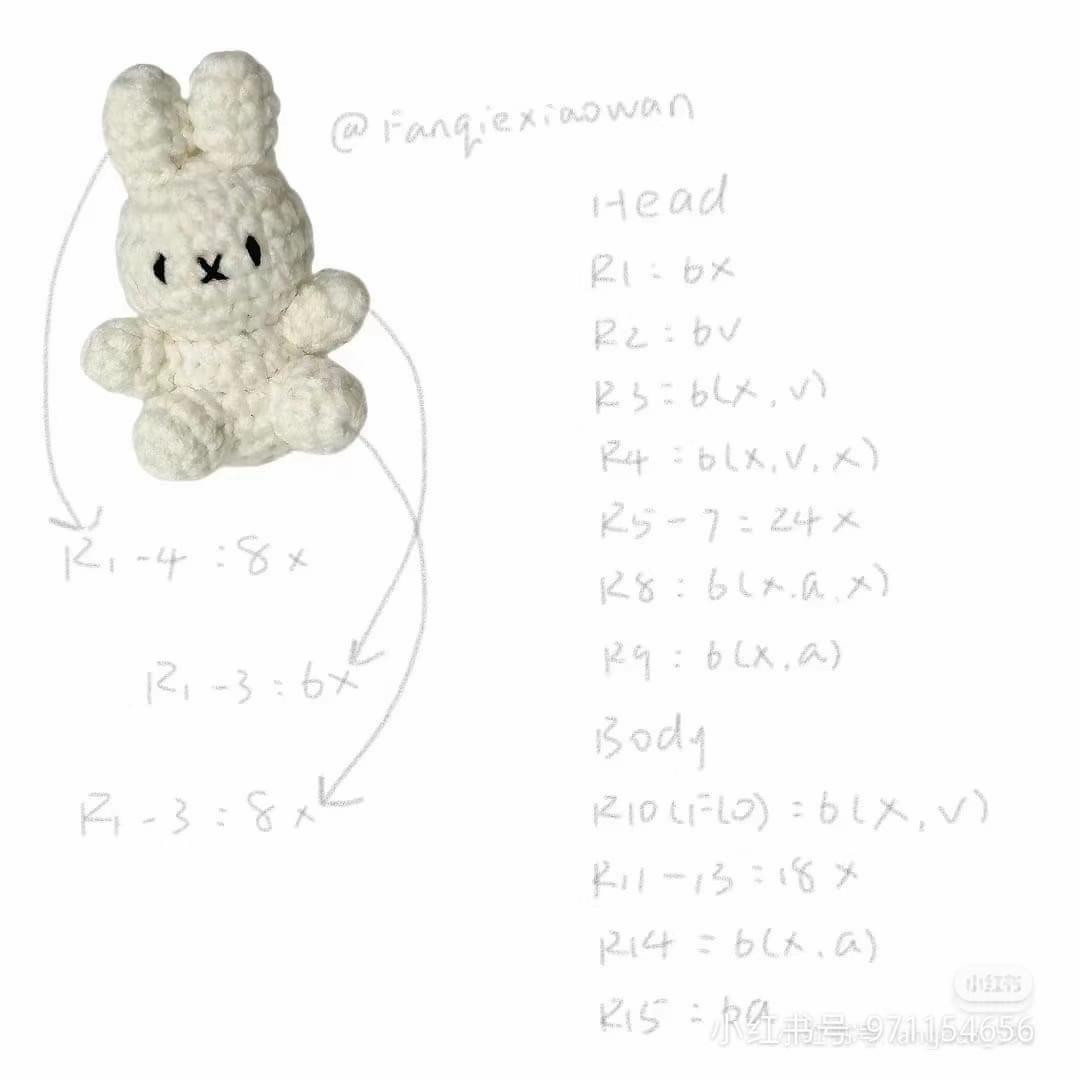 @Fanqiexiaowan
Head
R1:6x
R2:6v
R3:6(x,v)
R4:6(x,v,x)
R5-7:24x
R8:6(x.a.x)
R9:6(x,a)
Body
R10(FLO):6(x,v)
R11-13:18x
R14:6(x,a)
R15:6a
R1-4:8x
R1-3:6x
R1-3:8x
小红书
小红书号:971154656